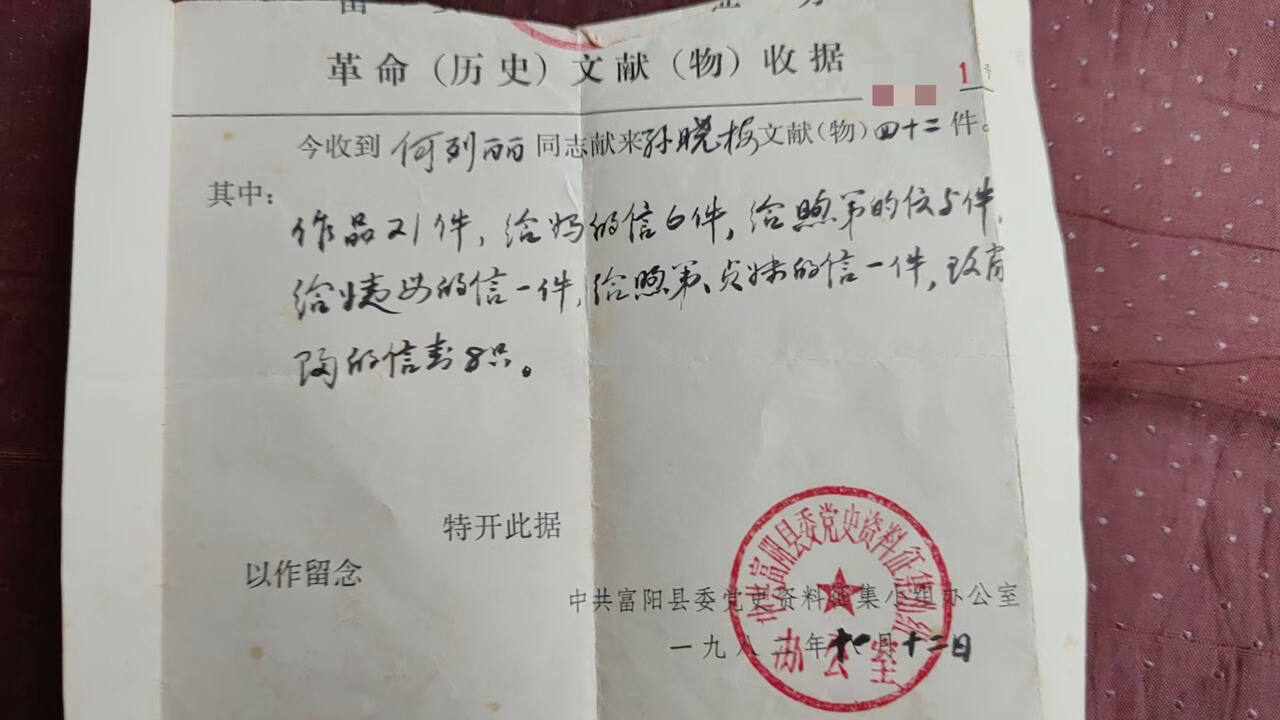 革命（历史）文献（物）收据
1号
今收到 何列丽 同志献来孙晓梅文献（物）四十二件。
其中：
作品21件，给妈的信6件，给煦弟的信5件，
给姨母的信一件，给煦弟、贞妹的信一件，
的信封8只。
特开此据
以作留念
中共富阳县委党史资料征集小组办公室
一九八二年十一月十二日
办公室